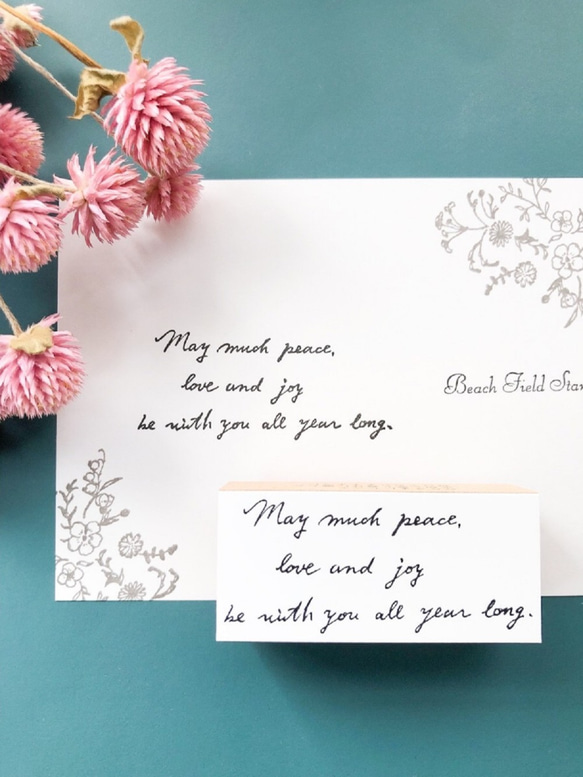 May much peace,
love and joy
be with you all year long.
Beach Field
May much peace,
love and joy
be with you all year long.